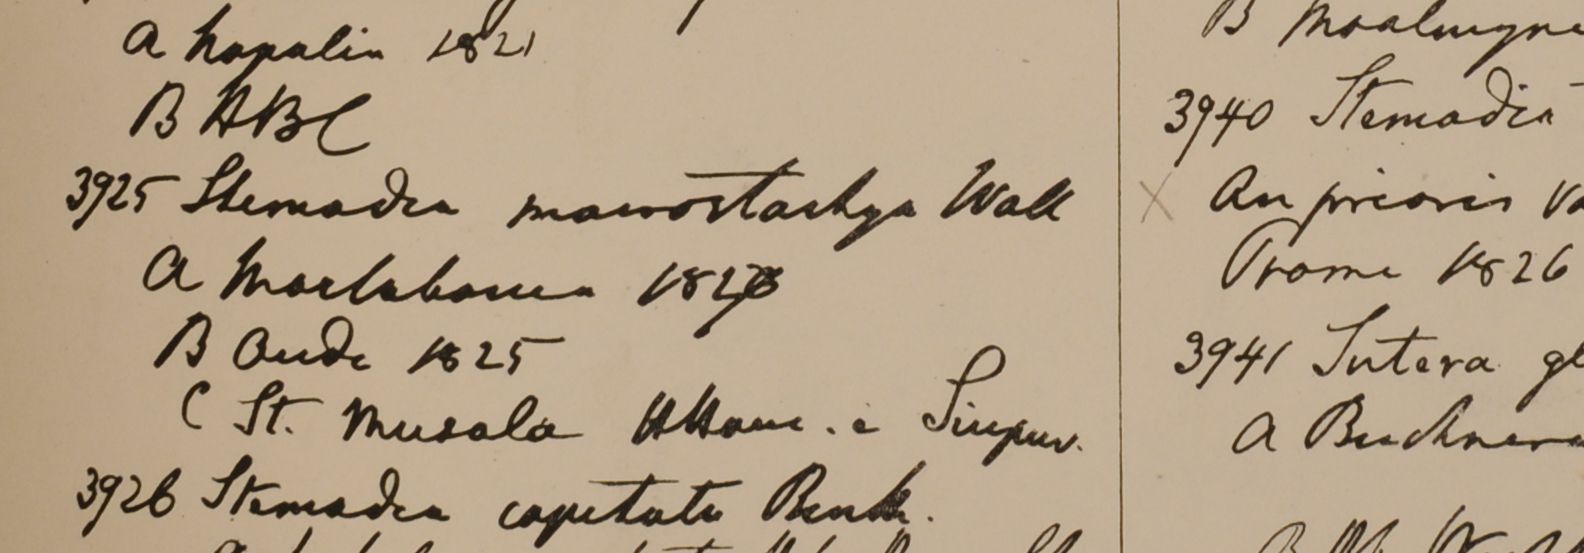 A Napalia 1821
B HBC
3925 Stemodia macrostachya Wall
A Martabania 1827
B Oude 1825
C St. Musala HHam. e Singpur.
3926 Stemodia capitata Benth.
B Moalmyne
3940 Stemodia
X An prioris va
Prome 1826
3941 Sutera gl
A Buckner